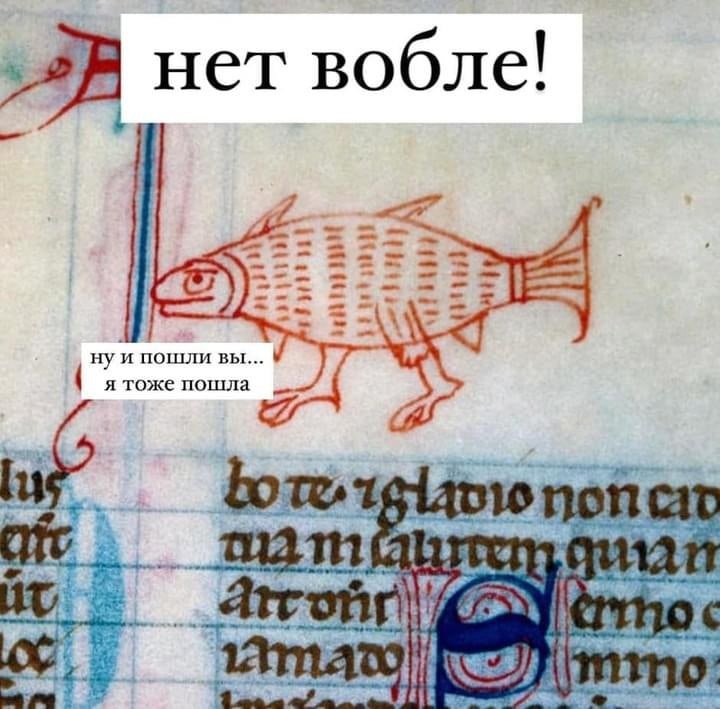 нет вобле!
ну и пошли вы...
я тоже пошла
lus
bo te. ⁊ gladio non cad
tua in salutem quia
ait dñs Sermo
iam a do mino